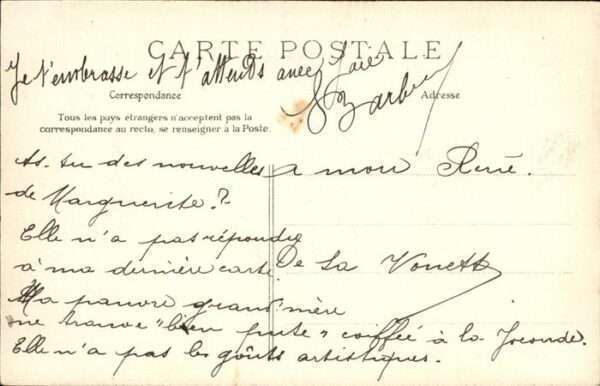 CARTE POSTALE
Je t'embrasse et t'attends avec joie
Correspondance
Adresse
Tous les pays étrangers n'acceptent pas la
correspondance au recto, se renseigner à la Poste.
As-tu des nouvelles
de Marguerite?
Elle n'a pas répondu
à ma dernière carte
Ma pauvre grand'mère
me trouve "bien" coiffée à la Joconde.
Elle n'a pas les goûts artistiques.
a mon René.
De sa